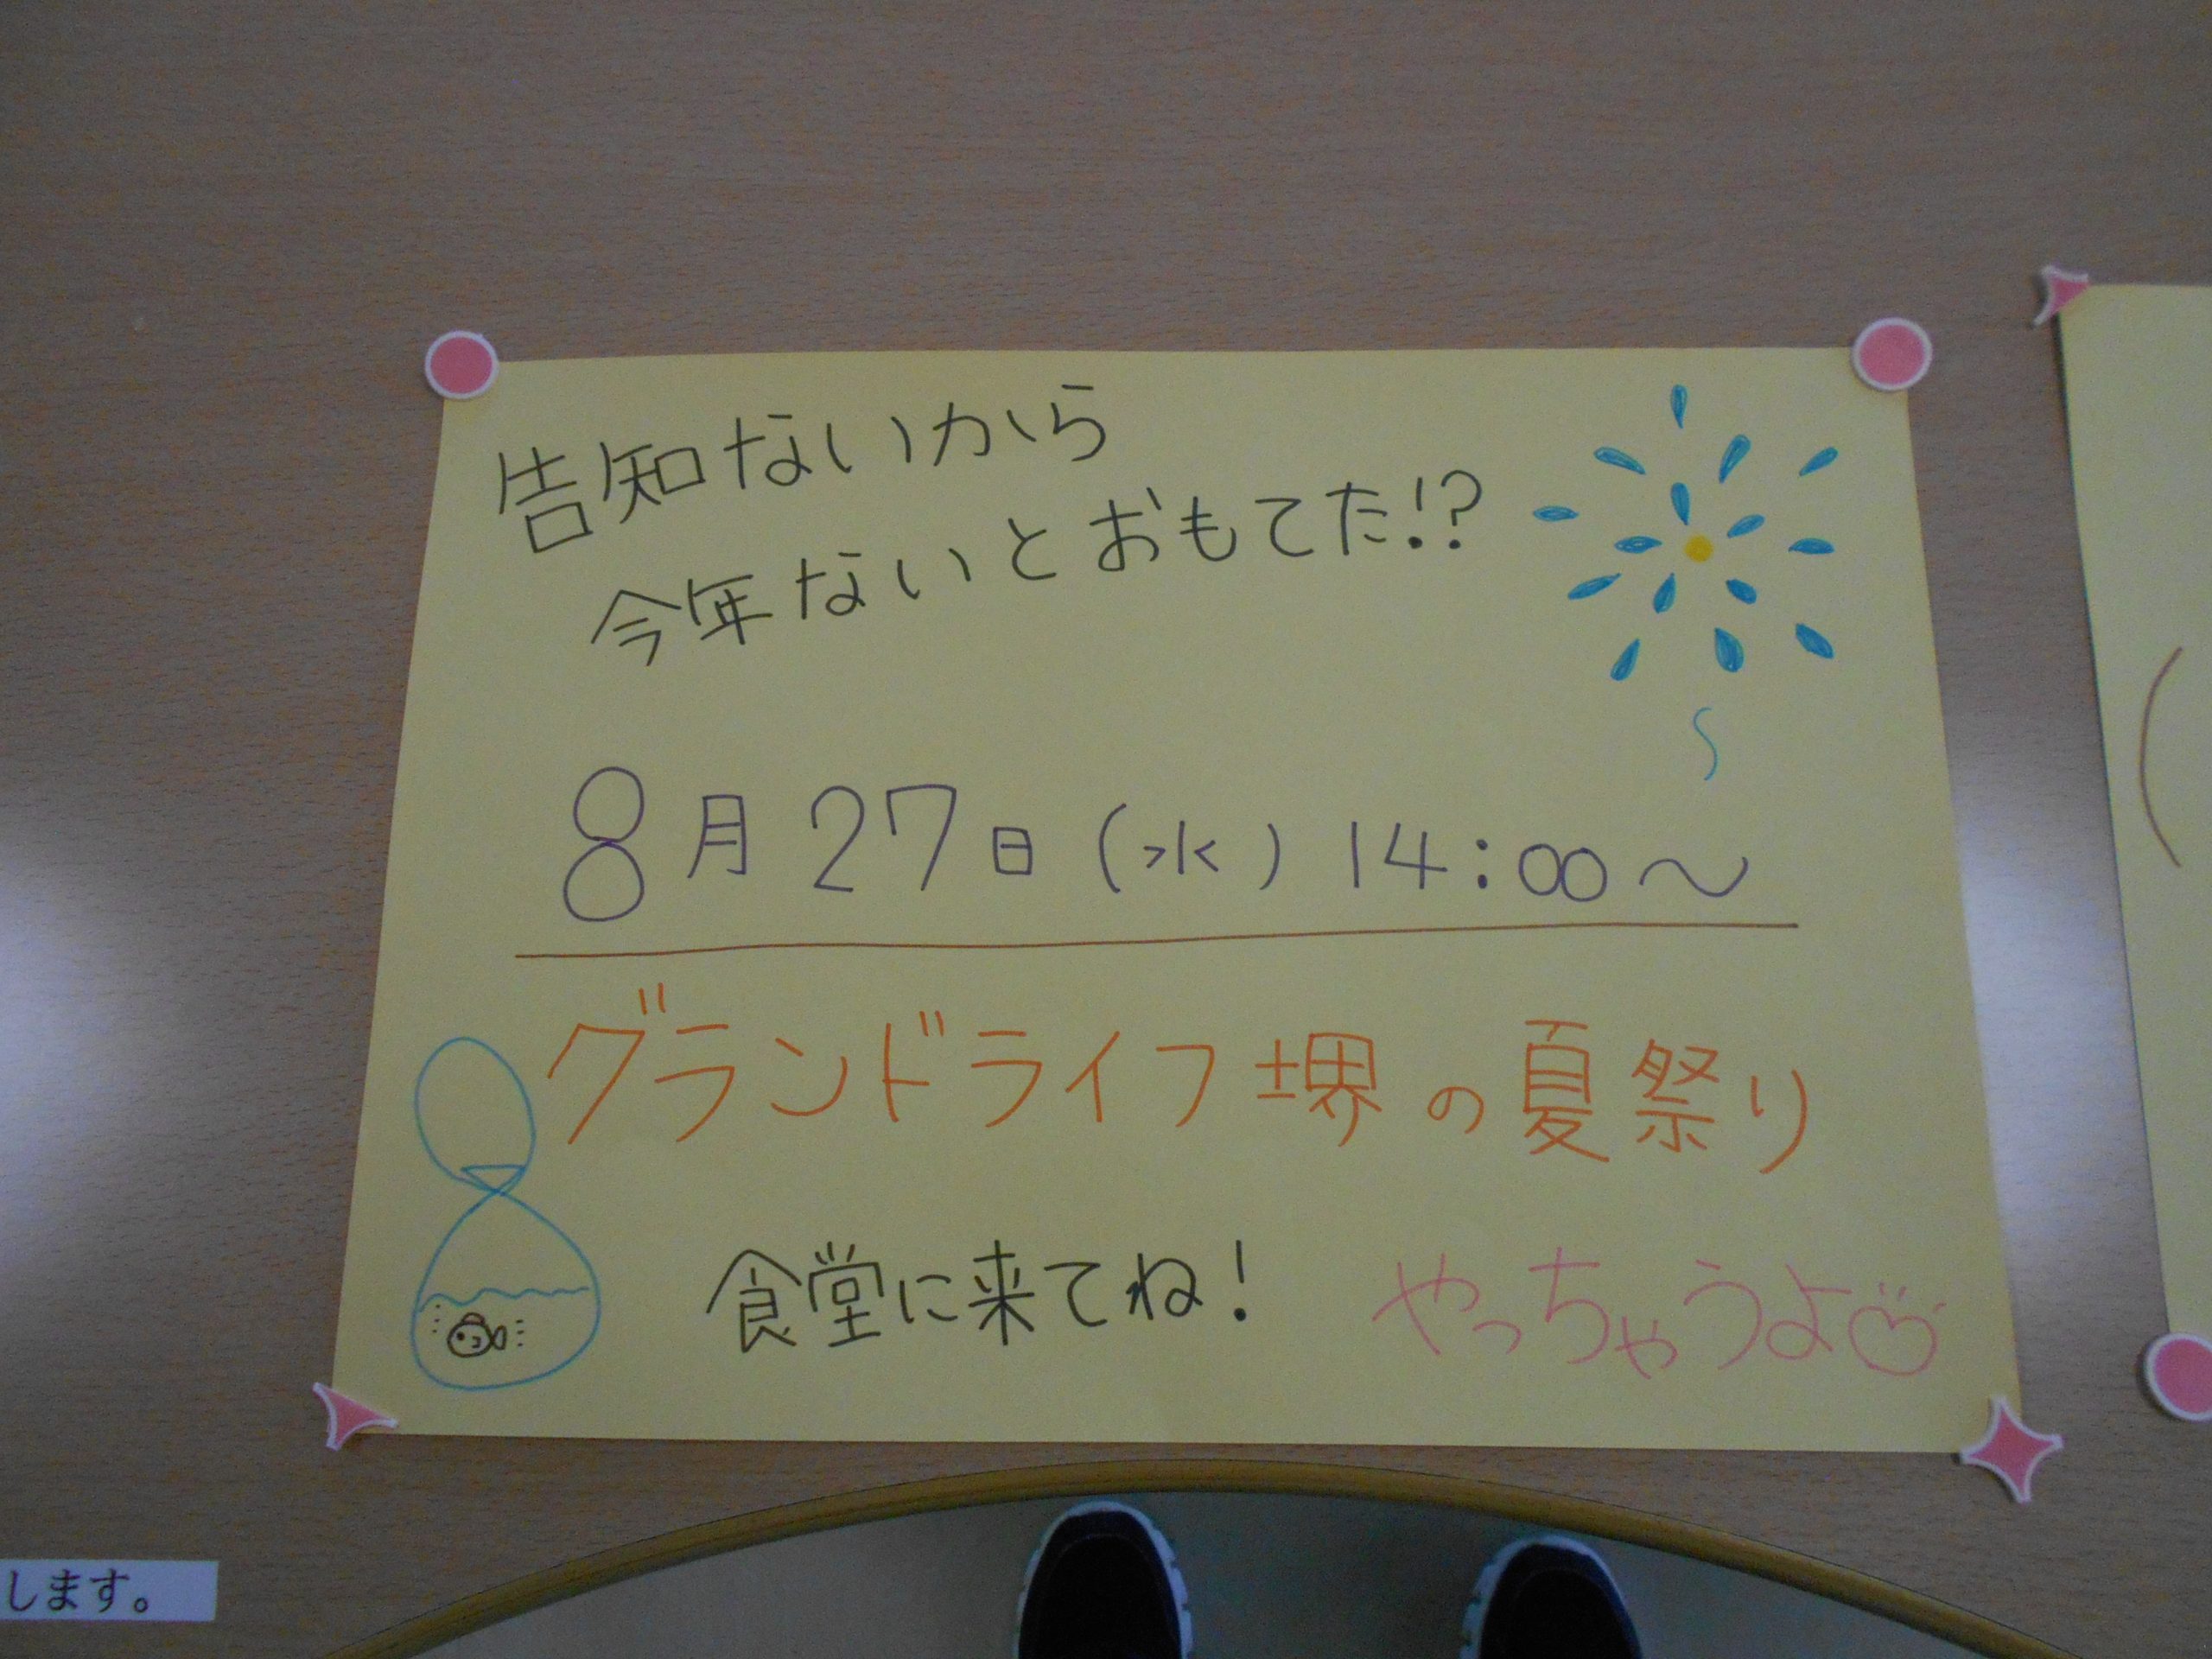 告知ないから
今年ないとおもてた!?
8月27日(水)14:00〜
グランドライフ堺の夏祭り
食堂に来てね!
やっちゃうよ
します。